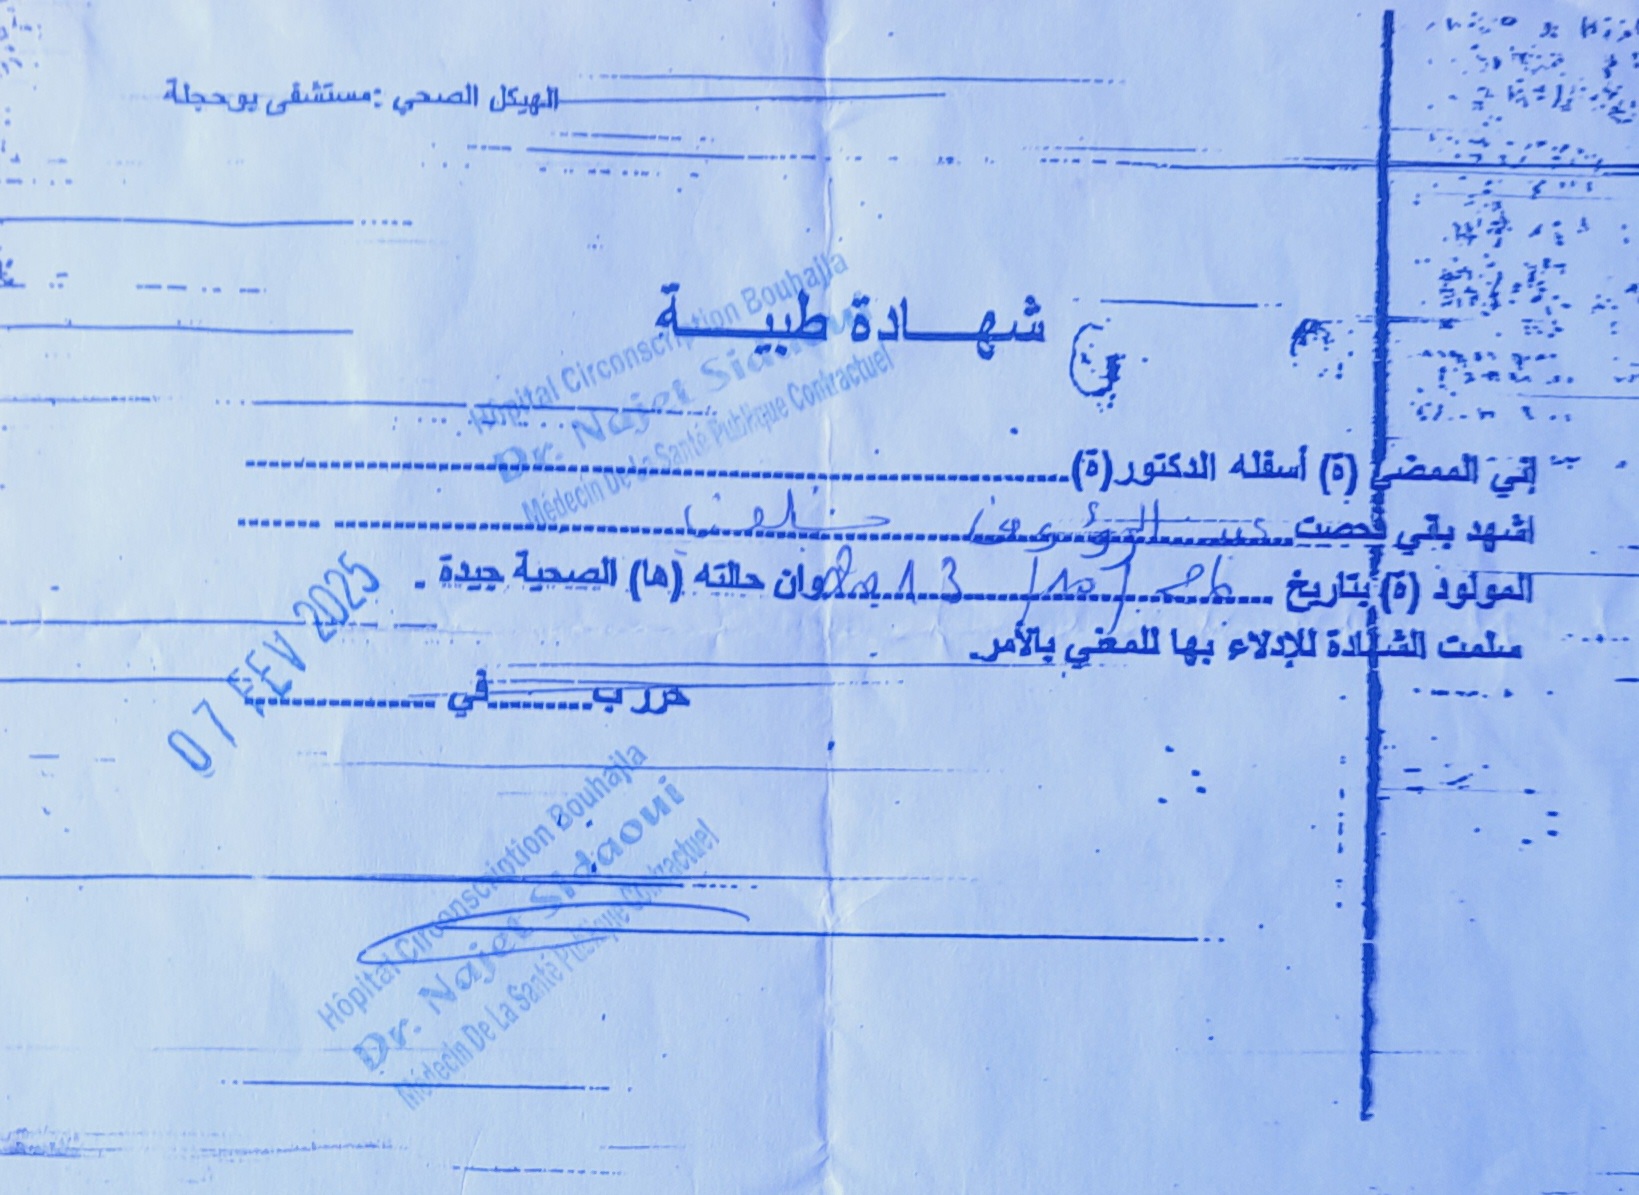 الهيكل الصحي :مستشفى بوحجلة
شهـــادة طبيـــة
Hôpital Circonscription Bouhajla
Dr. Najet Sidaoui
Médecin De La Santé Publique Contractuel
إني الممضي (ة) أسفله الدكتور(ة)
اشهد بأني فحصت عبد الرؤوف خلف
المولود (ة) بتاريخ وان حالته (ها) الصحية جيدة .
سلمت الشهادة للإدلاء بها للمعني بالأمر.
حرر ب في
07 FEV 2025
Hôpital Circonscription Bouhajla
Dr. Najet Sidaoui
Médecin De La Santé Publique Contractuel